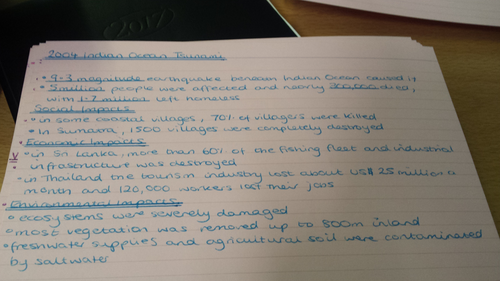 2017
2004 Indian Ocean Tsunami
• 9.3 magnitude earthquake beneath Indian Ocean caused it
• 5million people were affected and nearly 300,000 died,
with 1.7 million left homeless
Social Impacts
• in some coastal villages, 70% of villagers were killed
• In Sumatra, 1500 villages were completely destroyed
• Economic Impacts
• in Sri Lanka, more than 60% of the fishing fleet and industrial
infrastructure was destroyed
• in Thailand the tourism industry lost about US$ 25 million a
month and 120,000 workers lost their jobs
• Environmental Impacts
• ecosystems were severely damaged
• most vegetation was removed up to 800m inland
• freshwater supplies and agricultural soil were contaminated
by saltwater